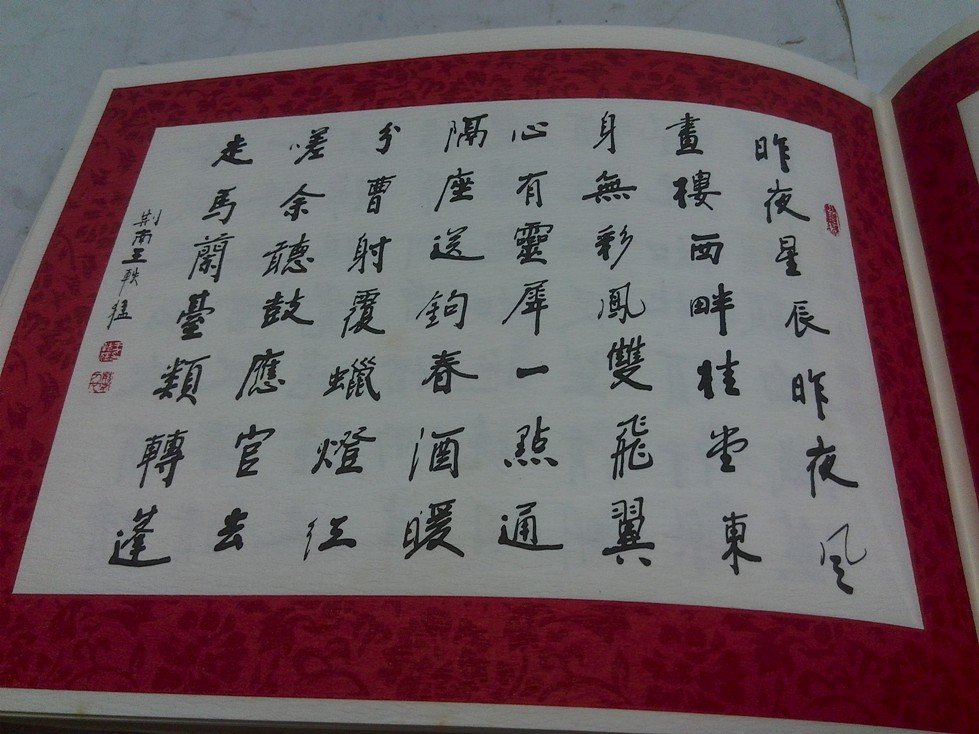 昨夜星辰昨夜风
畫樓西畔桂堂東
身無彩鳳雙飛翼
心有靈犀一點通
隔座送鉤春酒暖
分曹射覆蠟燈红
嗟余聽鼓應官去
走馬蘭臺類轉蓬
荆南王軼猛